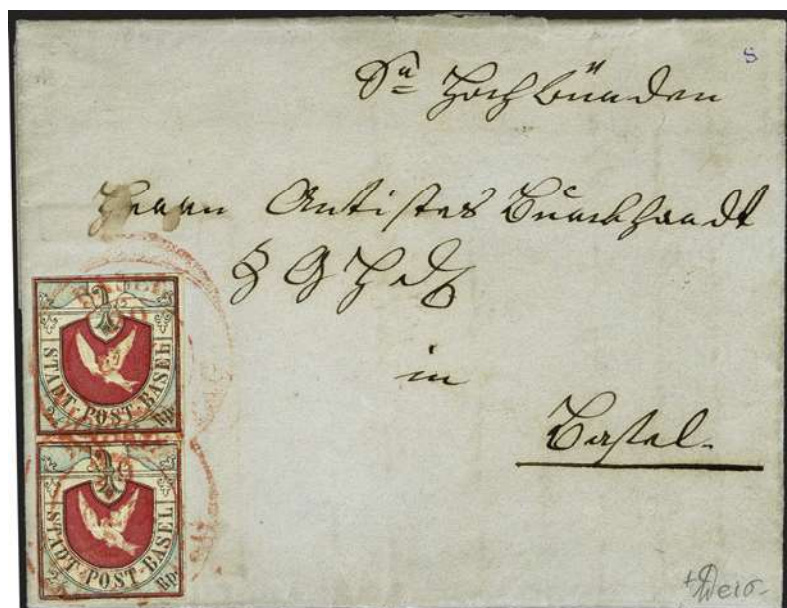 S
Sr Hochwürden
Herrn Antistes Burckhardt
in
Basel.
BASEL
STADT-POST-BASEL
2½ Rp.
BASEL
STADT-POST-BASEL
2½ Rp.